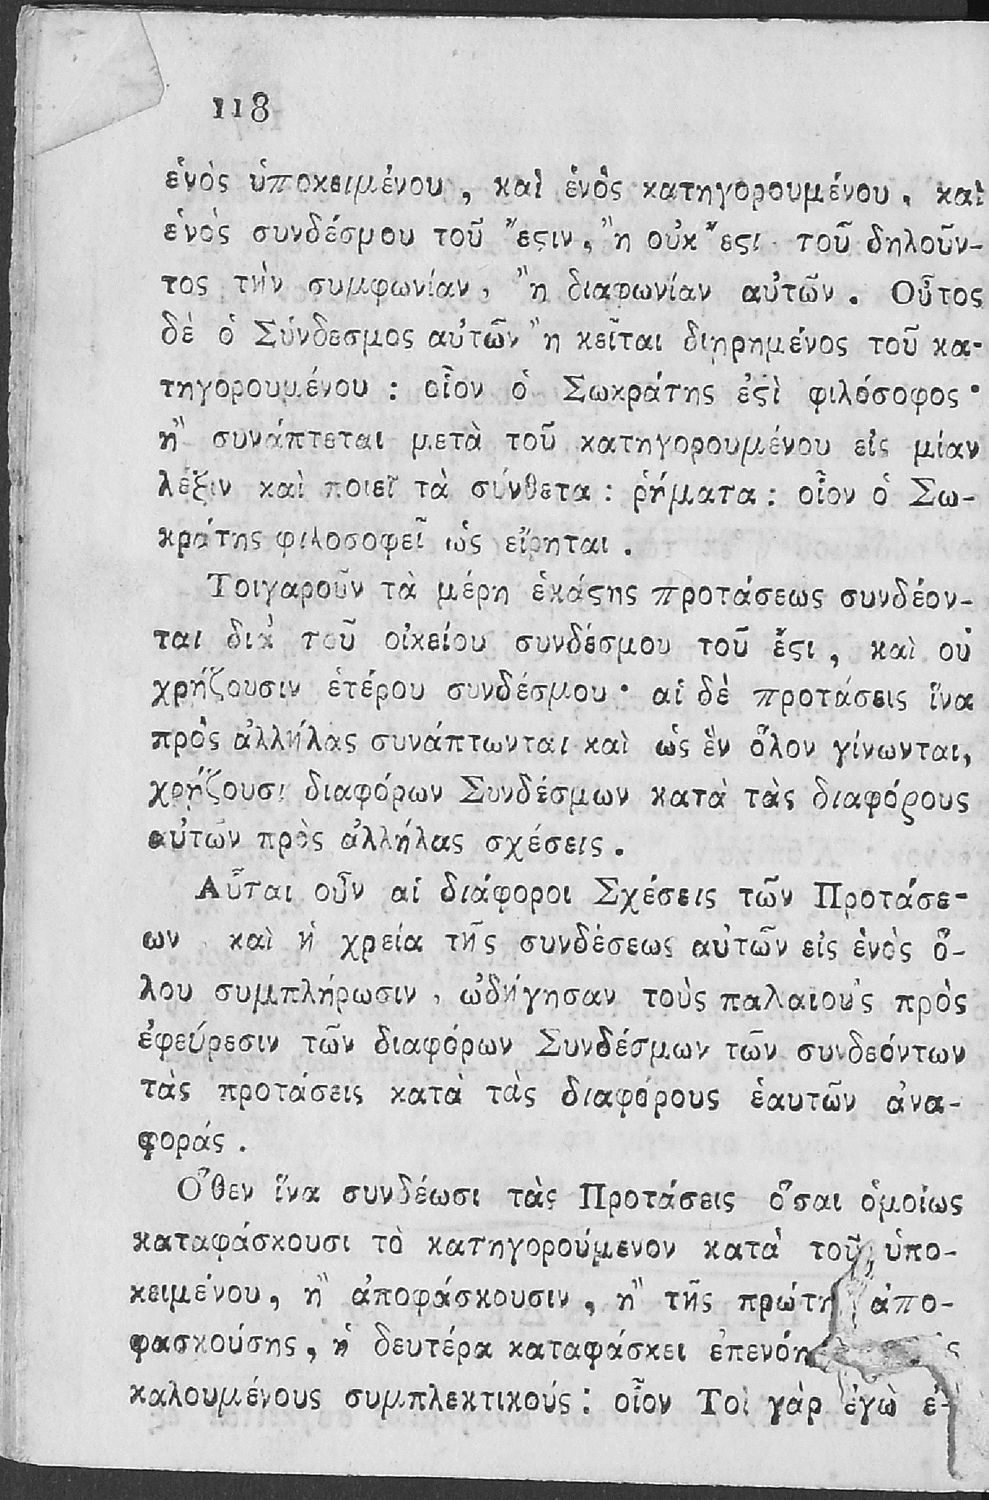 118
ἑνὸς ὑποκειμένου, καὶ ἑνὸς κατηγορουμένου, καὶ
ἑνὸς συνδέσμου τοῦ ἔϛιν, ἢ οὐκ ἔϛι τοῦ δηλοῦν-
τος τὴν συμφωνίαν, ἢ διαφωνίαν αὐτῶν. Οὗτος
δὲ ὁ Σύνδεσμος αὐτῶν ἢ κεῖται διῃρημένος τοῦ κα-
τηγορουμένου : οἷον ὁ Σωκράτης ἐϛὶ φιλόσοφος·
ἢ συνάπτεται μετὰ τοῦ κατηγορουμένου εἰς μίαν
λέξιν καὶ ποιεῖ τὰ σύνθετα : ῥήματα : οἷον ὁ Σω-
κράτης φιλοσοφεῖ ὡς εἴρηται.
Τοιγαροῦν τὰ μέρη ἑκάϛης προτάσεως συνδέον-
ται διὰ τοῦ οἰκείου συνδέσμου τοῦ ἔϛι, καὶ οὐ
χρῄζουσιν ἑτέρου συνδέσμου· αἱ δὲ προτάσεις ἵνα
πρὸς ἀλλήλας συνάπτωνται καὶ ὡς ἓν ὅλον γίνωνται,
χρῄζουσι διαφόρων Συνδέσμων κατὰ τὰς διαφόρους
αὐτῶν πρὸς ἀλλήλας σχέσεις.
Αὗται οὖν αἱ διάφοροι Σχέσεις τῶν Προτάσε-
ων καὶ ἡ χρεία τῆς συνδέσεως αὐτῶν εἰς ἑνὸς ὅ-
λου συμπλήρωσιν, ὡδήγησαν τοὺς παλαιοὺς πρὸς
ἐφεύρεσιν τῶν διαφόρων Συνδέσμων τῶν συνδεόντων
τὰς προτάσεις κατὰ τὰς διαφόρους ἑαυτῶν ἀνα-
φοράς.
Ὅθεν ἵνα συνδέωσι τὰς Προτάσεις ὅσαι ὁμοίως
καταφάσκουσι τὸ κατηγορούμενον κατὰ τοῦ ὑπο-
κειμένου, ἢ ἀποφάσκουσιν, ἢ τῆς πρώτης ἀπο-
φασκούσης, ἡ δευτέρα καταφάσκει
καλουμένους συμπλεκτικούς : οἷον Τοὶ γὰρ ἐγὼ ἐ-